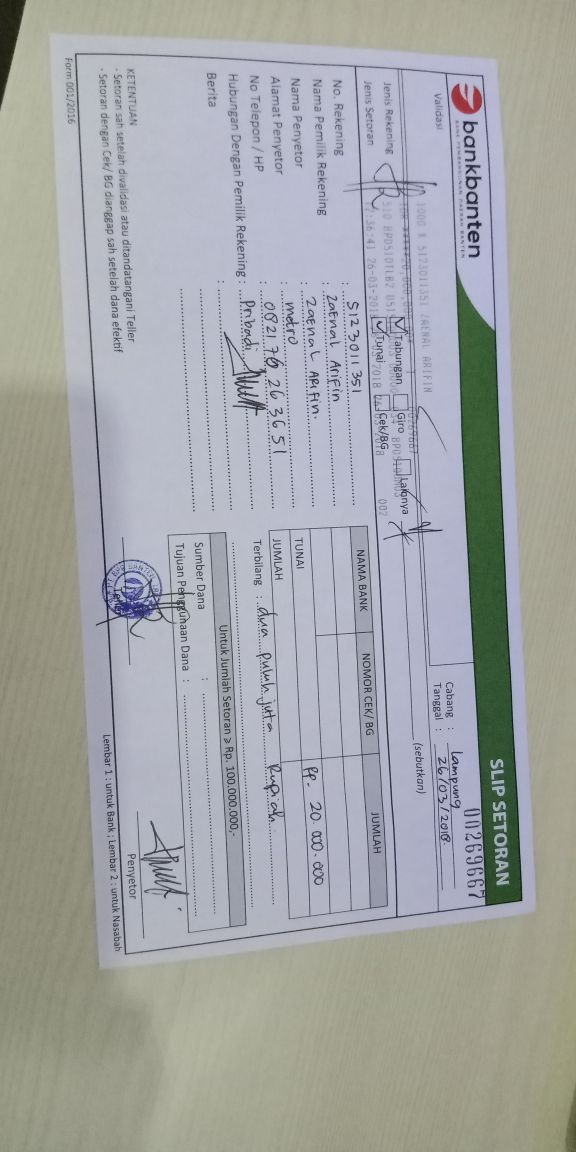 bankbanten
BANK PEMBANGUNAN DAERAH BANTEN
SLIP SETORAN
00269667
Validasi
1000 K 5123011351 ZAENAL ARIFIN
Cabang : Lampung
Tanggal : 26/03/2018
Jenis Rekening Tabungan Giro Lainnya (sebutkan)
Jenis Setoran Tunai Cek/BG
26-03-2018 002
No. Rekening : 5123011351
Nama Pemilik Rekening : Zaenal Arifin
Nama Penyetor : Zaenal Arifin.
Alamat Penyetor : metro
No Telepon / HP : 082176263651
Hubungan Dengan Pemilik Rekening : Pribadi
Berita :
NAMA BANK NOMOR CEK/ BG JUMLAH
TUNAI Rp. 20.000.000
JUMLAH
Terbilang : dua puluh juta Rupiah.
Untuk Jumlah Setoran ≥ Rp. 100.000.000,-
Sumber Dana :
Tujuan Penggunaan Dana :
KETENTUAN
- Setoran sah setelah divalidasi atau ditandatangani Teller
- Setoran dengan Cek/ BG dianggap sah setelah dana efektif
Teller
Penyetor
Form 001/2016
Lembar 1 : untuk Bank ; Lembar 2 : untuk Nasabah